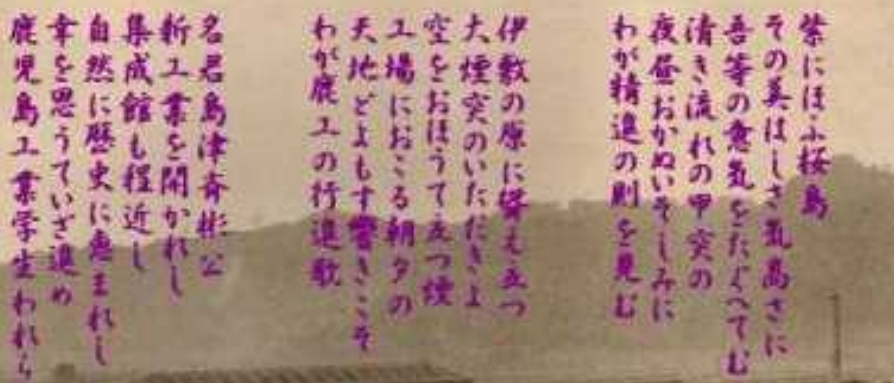 紫にほふ桜島
その美はしさ気高さに
吾等の意気をたぐへてむ
清き流れの甲突の
夜昼おかぬいそしみに
わが精進の則を見む
伊敷の原に聳え立つ
大煙突のいただきよ
空をおほうて立つ煙
工場におこる朝夕の
天地どよもす響きこそ
わが鹿工の行進歌
名君島津斉彬公
新工業を開かれし
集成館も程近し
自然に歴史に恵まれし
幸を思うていざ進め
鹿児島工業学生われら